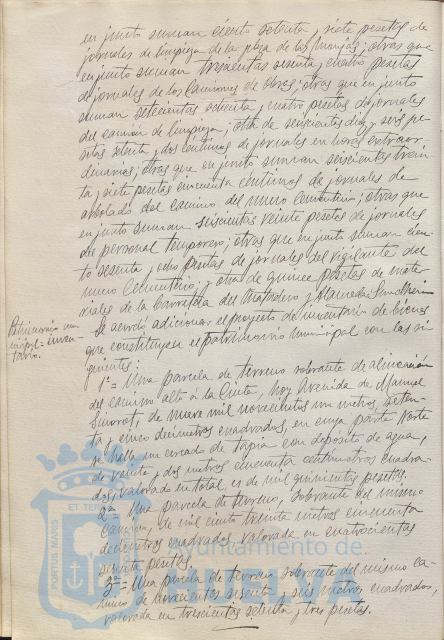 en junto suman ciento setenta y siete pesetas de
jornales de limpieza de la plaza de las Monjas; otras que
en junto suman trescientas sesenta y cuatro pesetas
de jornales de los camiones de obras; otras que en junto
suman setecientas setenta y cuatro pesetas de jornales
del camión de limpieza; otra de seiscientas diez y seis pe-
setas setenta y dos centimos de jornales en horas extraor-
dinarias; otras que en junto suman seiscientas trein
ta y siete pesetas cincuenta centimos de jornales de
arbolado del camino del nuevo Cementerio; otras que
en junto suman seiscientas veinte pesetas de jornales
del personal temporero; otras que en junto suman cien-
to sesenta y ocho pesetas de jornales del vigilante del
nuevo Cementerio, y otra de quince pesetas de mate-
riales de la Carretera del Matadero y Alameda Sundheim
Patrimonio mu-
nicipal = inven-
tario.
Se acordó adicionar el proyecto de inventario de bienes
que constituyen el patrimonio municipal con las si-
guientes:
1ª = Una parcela de terreno sobrante de alineación
del camino alto a la Cinta, hoy Avenida de Manuel
Siurot, de nueve mil novecientos un metros, seten-
ta y cinco decimetros cuadrados, en cuya parte Norte
se halla un cercado de tapia con deposito de agua,
de veinte y dos metros cincuenta centimetros cuadra-
dos, valorada en total en de mil quinientas pesetas.
2ª = Una parcela de terreno, sobrante del mismo
camino, de mil ciento treinta metros cincuenta
decimetros cuadrados valorada en cuatrocientas
sesenta pesetas.
3ª = Una parcela de terreno sobrante del mismo ca-
mino de novecientos sesenta y seis metros cuadrados,
valorada en trescientas setenta y tres pesetas.
PORTUS MARIS
ET TERRÆ
Ayuntamiento de
HUELVA